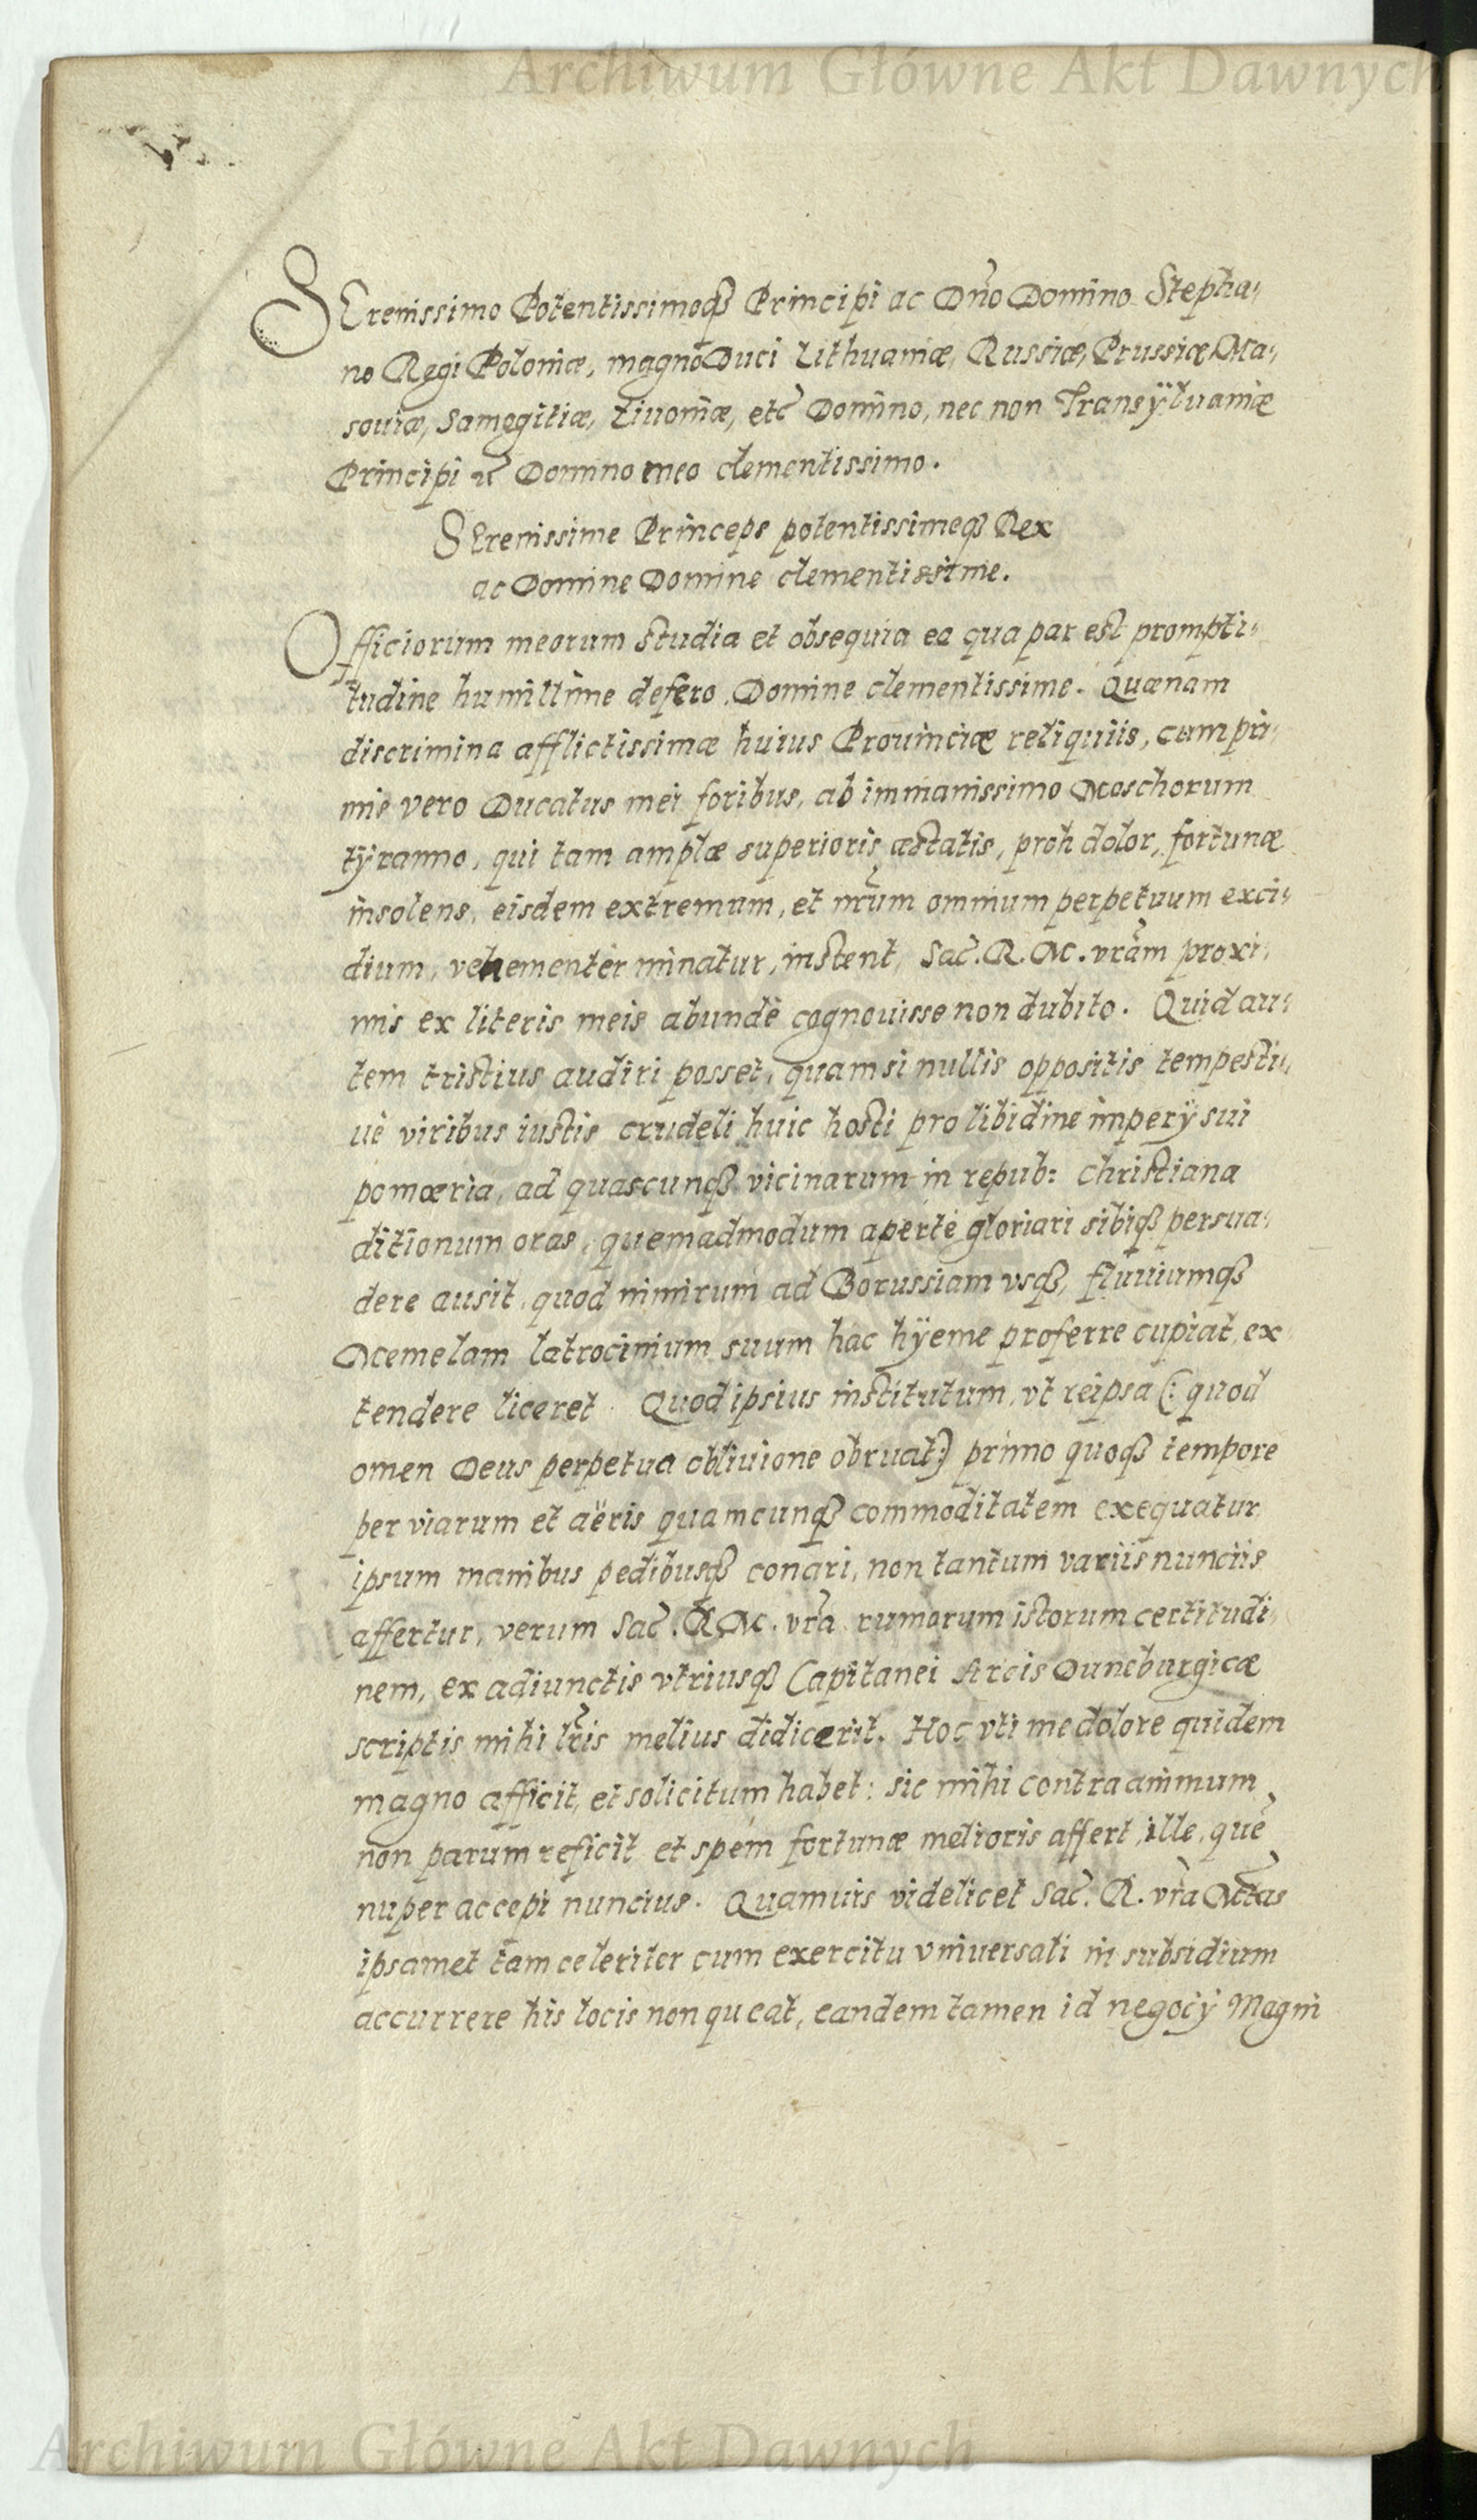 Archiwum Główne Akt Dawnych
SErenissimo Potentissimoq3 Principi ac Dño Domino Stepha-
no Regi Poloniæ, magno Duci Lithuaniæ, Russiæ, Prussiæ, Ma-
souiæ, Samogitiæ, Liuoniæ, etc Domino, nec non Transÿluaniæ
Principi etc Domino meo clementissimo.
SErenissime Princeps potentissimeq3 Rex
ac Domine Domine clementissime.
Officiorum meorum studia et obsequia ea qua par est prompti-
tudine humillime defero. Domine clementissime. Quænam
discrimina afflictissimæ huius Prouinciæ reliquiis, cum pri-
mis vero Ducatus mei foribus, ab immanissimo Moschorum
tÿranno, qui tam amplæ superioris æstatis, proh dolor, fortunæ
insolens, eisdem extremum, et nr̃um omnium perpetuum exci-
dium, vehementer minatur, instent, Sac. R. M. vrãm proxi-
mis ex literis meis abundè cognouisse non dubito. Quid au-
tem tristius audiri posset, quam si nullis oppositis tempesti-
uè viribus iustis crudeli huic hosti pro libidine imperÿ sui
pomœria, ad quascunq3 vicinarum in repub: Christiana
ditionum oras, quemadmodum apertè gloriari sibiq3 persua-
dere ausit, quod nimirum ad Borussiam vsq3, fluuiumq3
Memelam latrocinium suum hac hÿeme proferre cupiat, ex-
tendere liceret. Quod ipsius institutum, vt reipsa (: quod
omen Deus perpetua obliuione obruat:) primo quoq3 tempore
per viarum et aëris quamcunq3 commoditatem exequatur
ipsum manibus pedibusq3 conari, non tantum variis nunciis
affertur, verum Sac. R. M. vrã rumorum istorum certitudi-
nem, ex adiunctis vtriusq3 Capitanei Arcis Duneburgicæ
scriptis mihi lr̃is melius didicerit. Hoc vti me dolore quidem
magno afficit, et solicitum habet: sic mihi contra animum
non parum reficit et spem fortunæ melioris affert, ille, quẽ
nuper accepi nuncius. Quamuis videlicet Sac. R. vrã Mtas
ipsamet tam celeriter cum exercitu vniuersali in subsidium
accurrere his locis non queat, eandem tamen id negocÿ Magni
Archiwum Główne Akt Dawnych